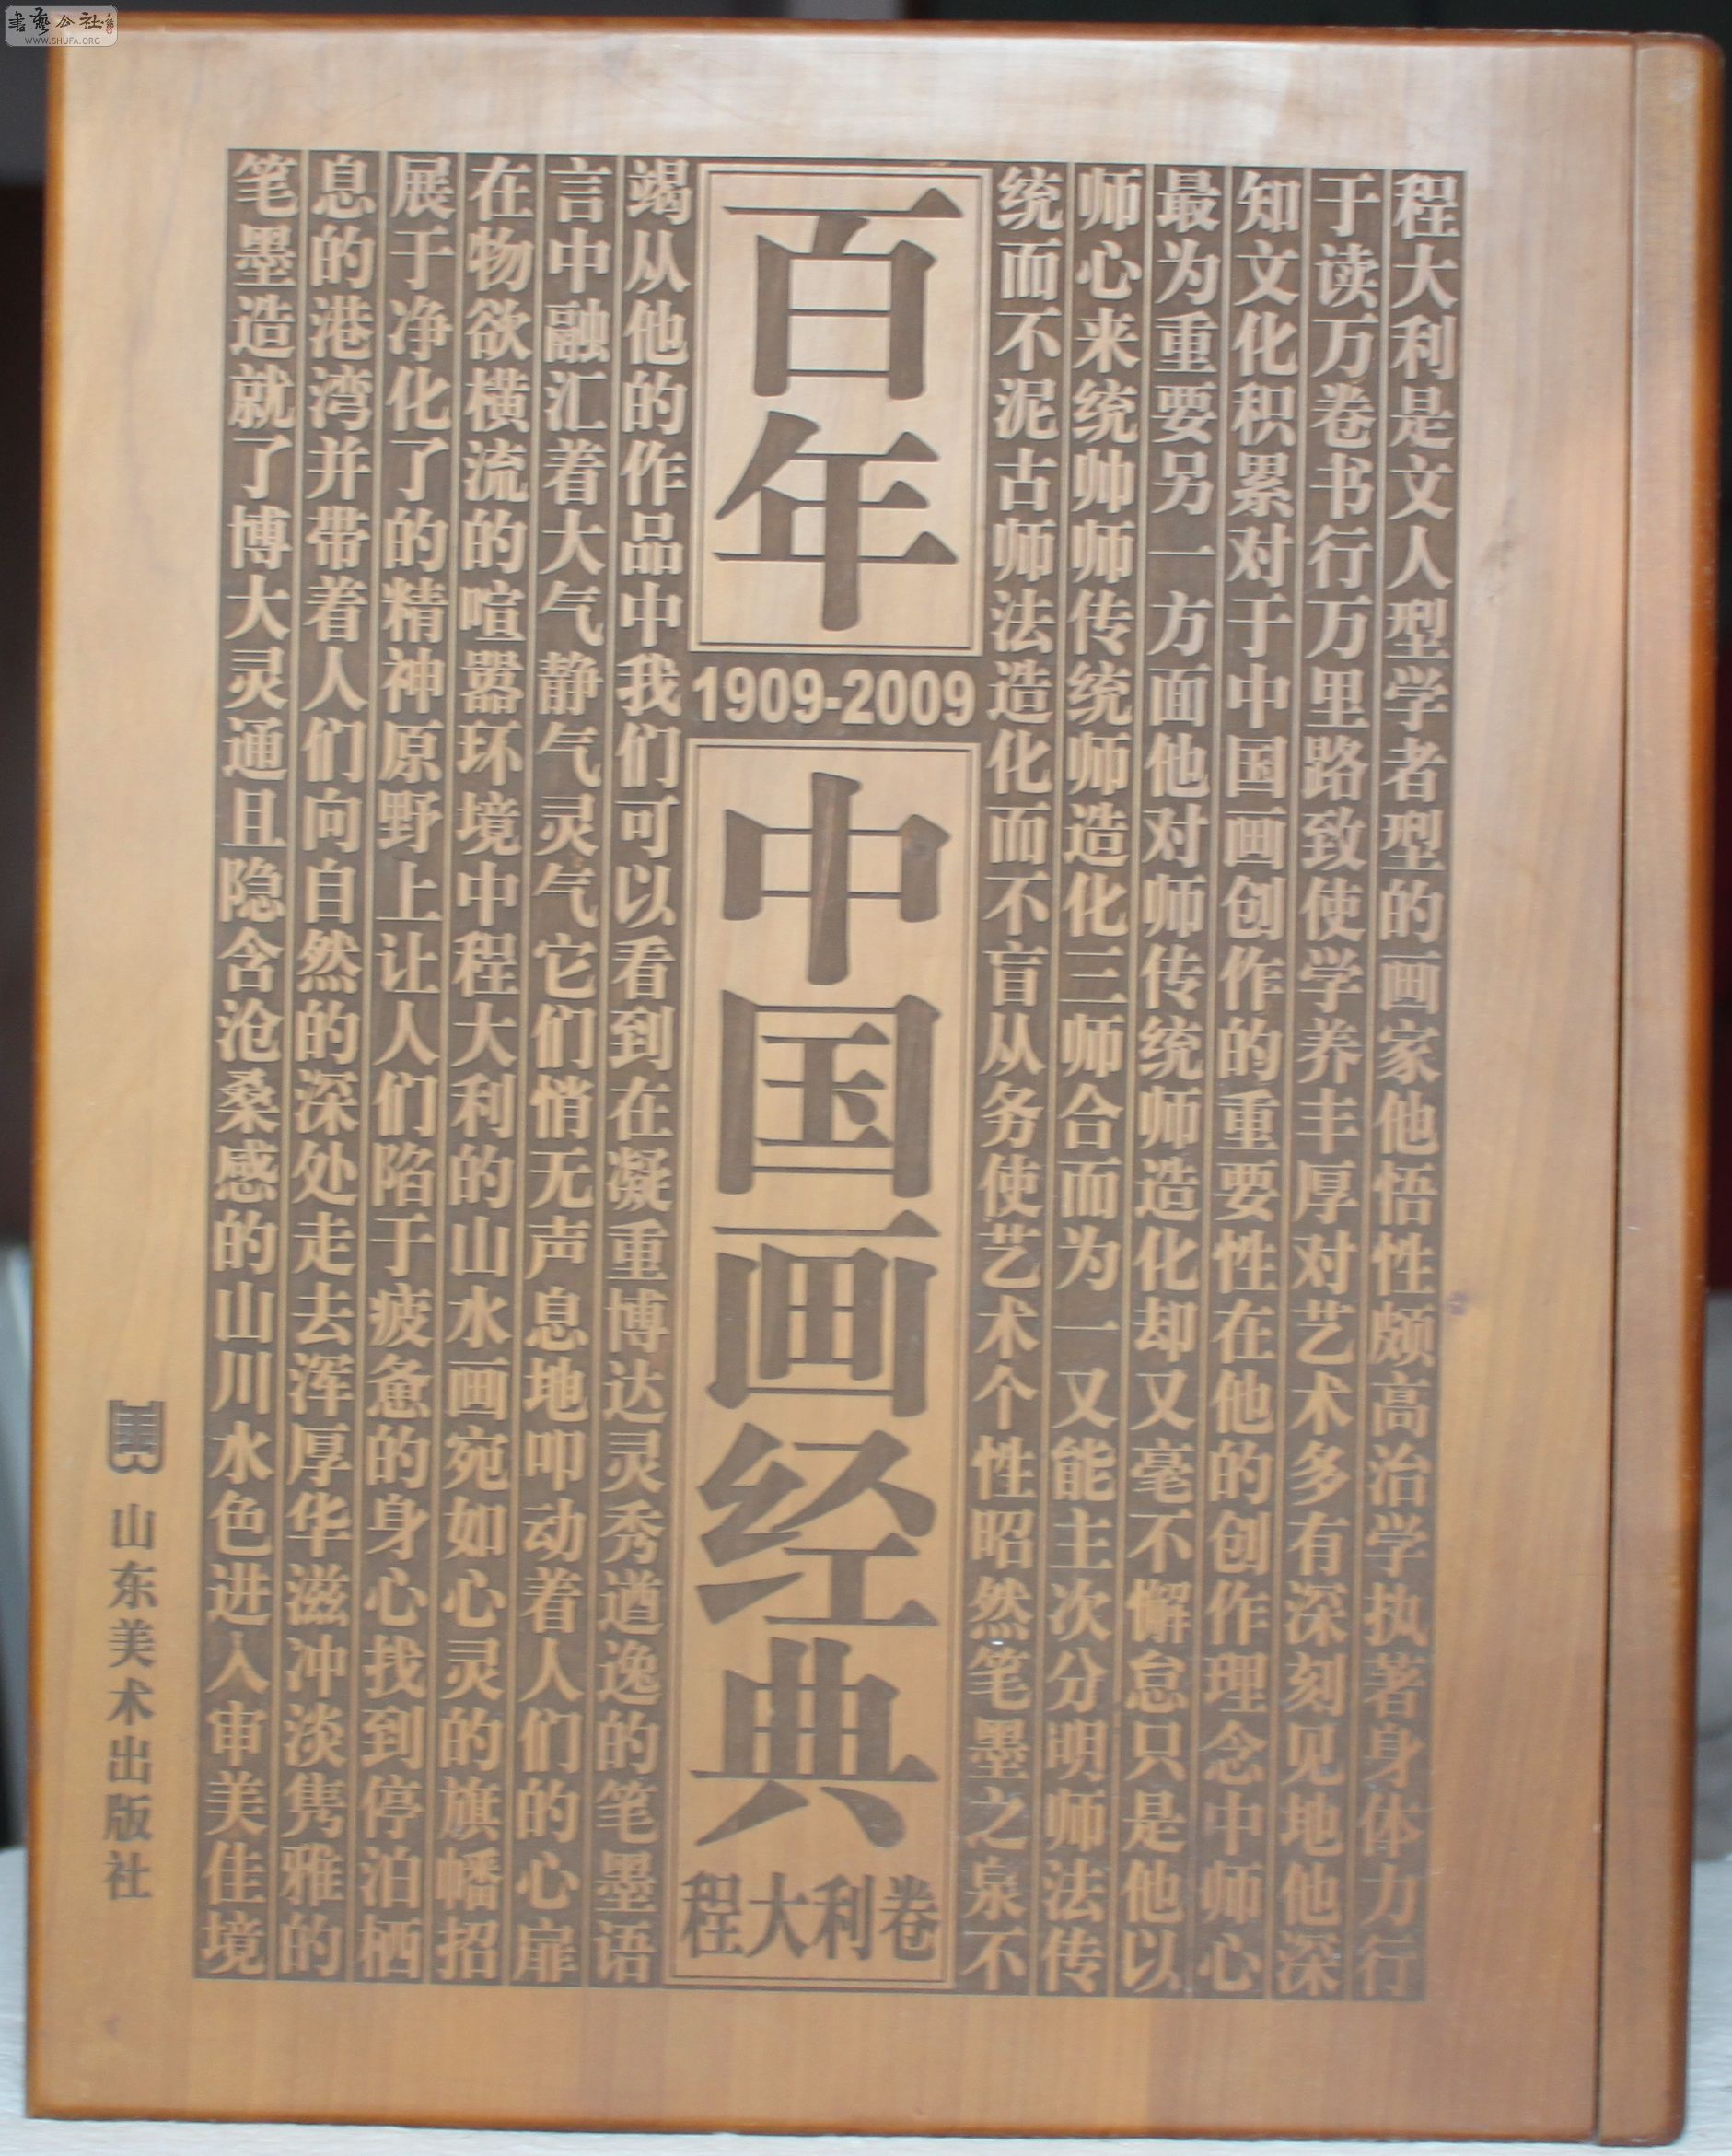 書藝公社
WWW.SHUFA.ORG
程大利是文人型学者型的画家他悟性颇高治学执著身体力行
于读万卷书行万里路致使学养丰厚对艺术多有深刻见地他深
知文化积累对于中国画创作的重要性在他的创作理念中师心
最为重要另一方面他对师传统师造化却又毫不懈怠只是他以
师心来统帅师传统师造化三师合而为一又能主次分明师法传
统而不泥古师法造化而不盲从务使艺术个性昭然笔墨之泉不
百年
1909-2009
中国画经典
程大利卷
竭从他的作品中我们可以看到在凝重博达灵秀遒逸的笔墨语
言中融汇着大气静气灵气它们悄无声息地叩动着人们的心扉
在物欲横流的喧嚣环境中程大利的山水画宛如心灵的旗幡招
展于净化了的精神原野上让人们陷于疲惫的身心找到停泊栖
息的港湾并带着人们向自然的深处走去浑厚华滋冲淡隽雅的
笔墨造就了博大灵通且隐含沧桑感的山川水色进入审美佳境
山东美术出版社